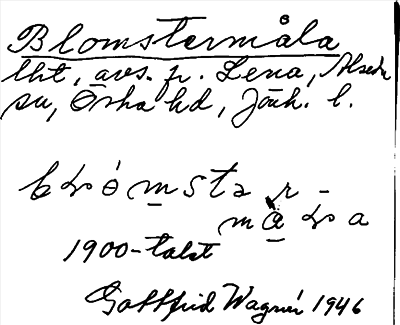 Blomstermåla
lht, avs. fr. Lena, Alseda
sn, Östra hd, Jönk. l.
1900-talet
Gottfrid Wagnér 1946